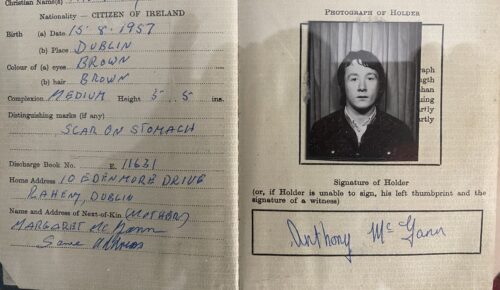 Christian Name(s)
Nationality — CITIZEN OF IRELAND
Birth (a) Date 15·8·1957
(b) Place DUBLIN
Colour of (a) eyes BROWN
(b) hair BROWN
Complexion MEDIUM Height 5 5 ins.
Distinguishing marks (if any)
SCAR ON STOMACH
Discharge Book No. E. 11631
Home Address 10 EDENMORE DRIVE
RAHENY, DUBLIN
Name and Address of Next-of-Kin (MOTHER)
MARGARET McGann
Same Address
PHOTOGRAPH OF HOLDER
raph
ngth
han
uing
rtly
rtly
Signature of Holder
(or, if Holder is unable to sign, his left thumbprint and the
signature of a witness)
Anthony McGann